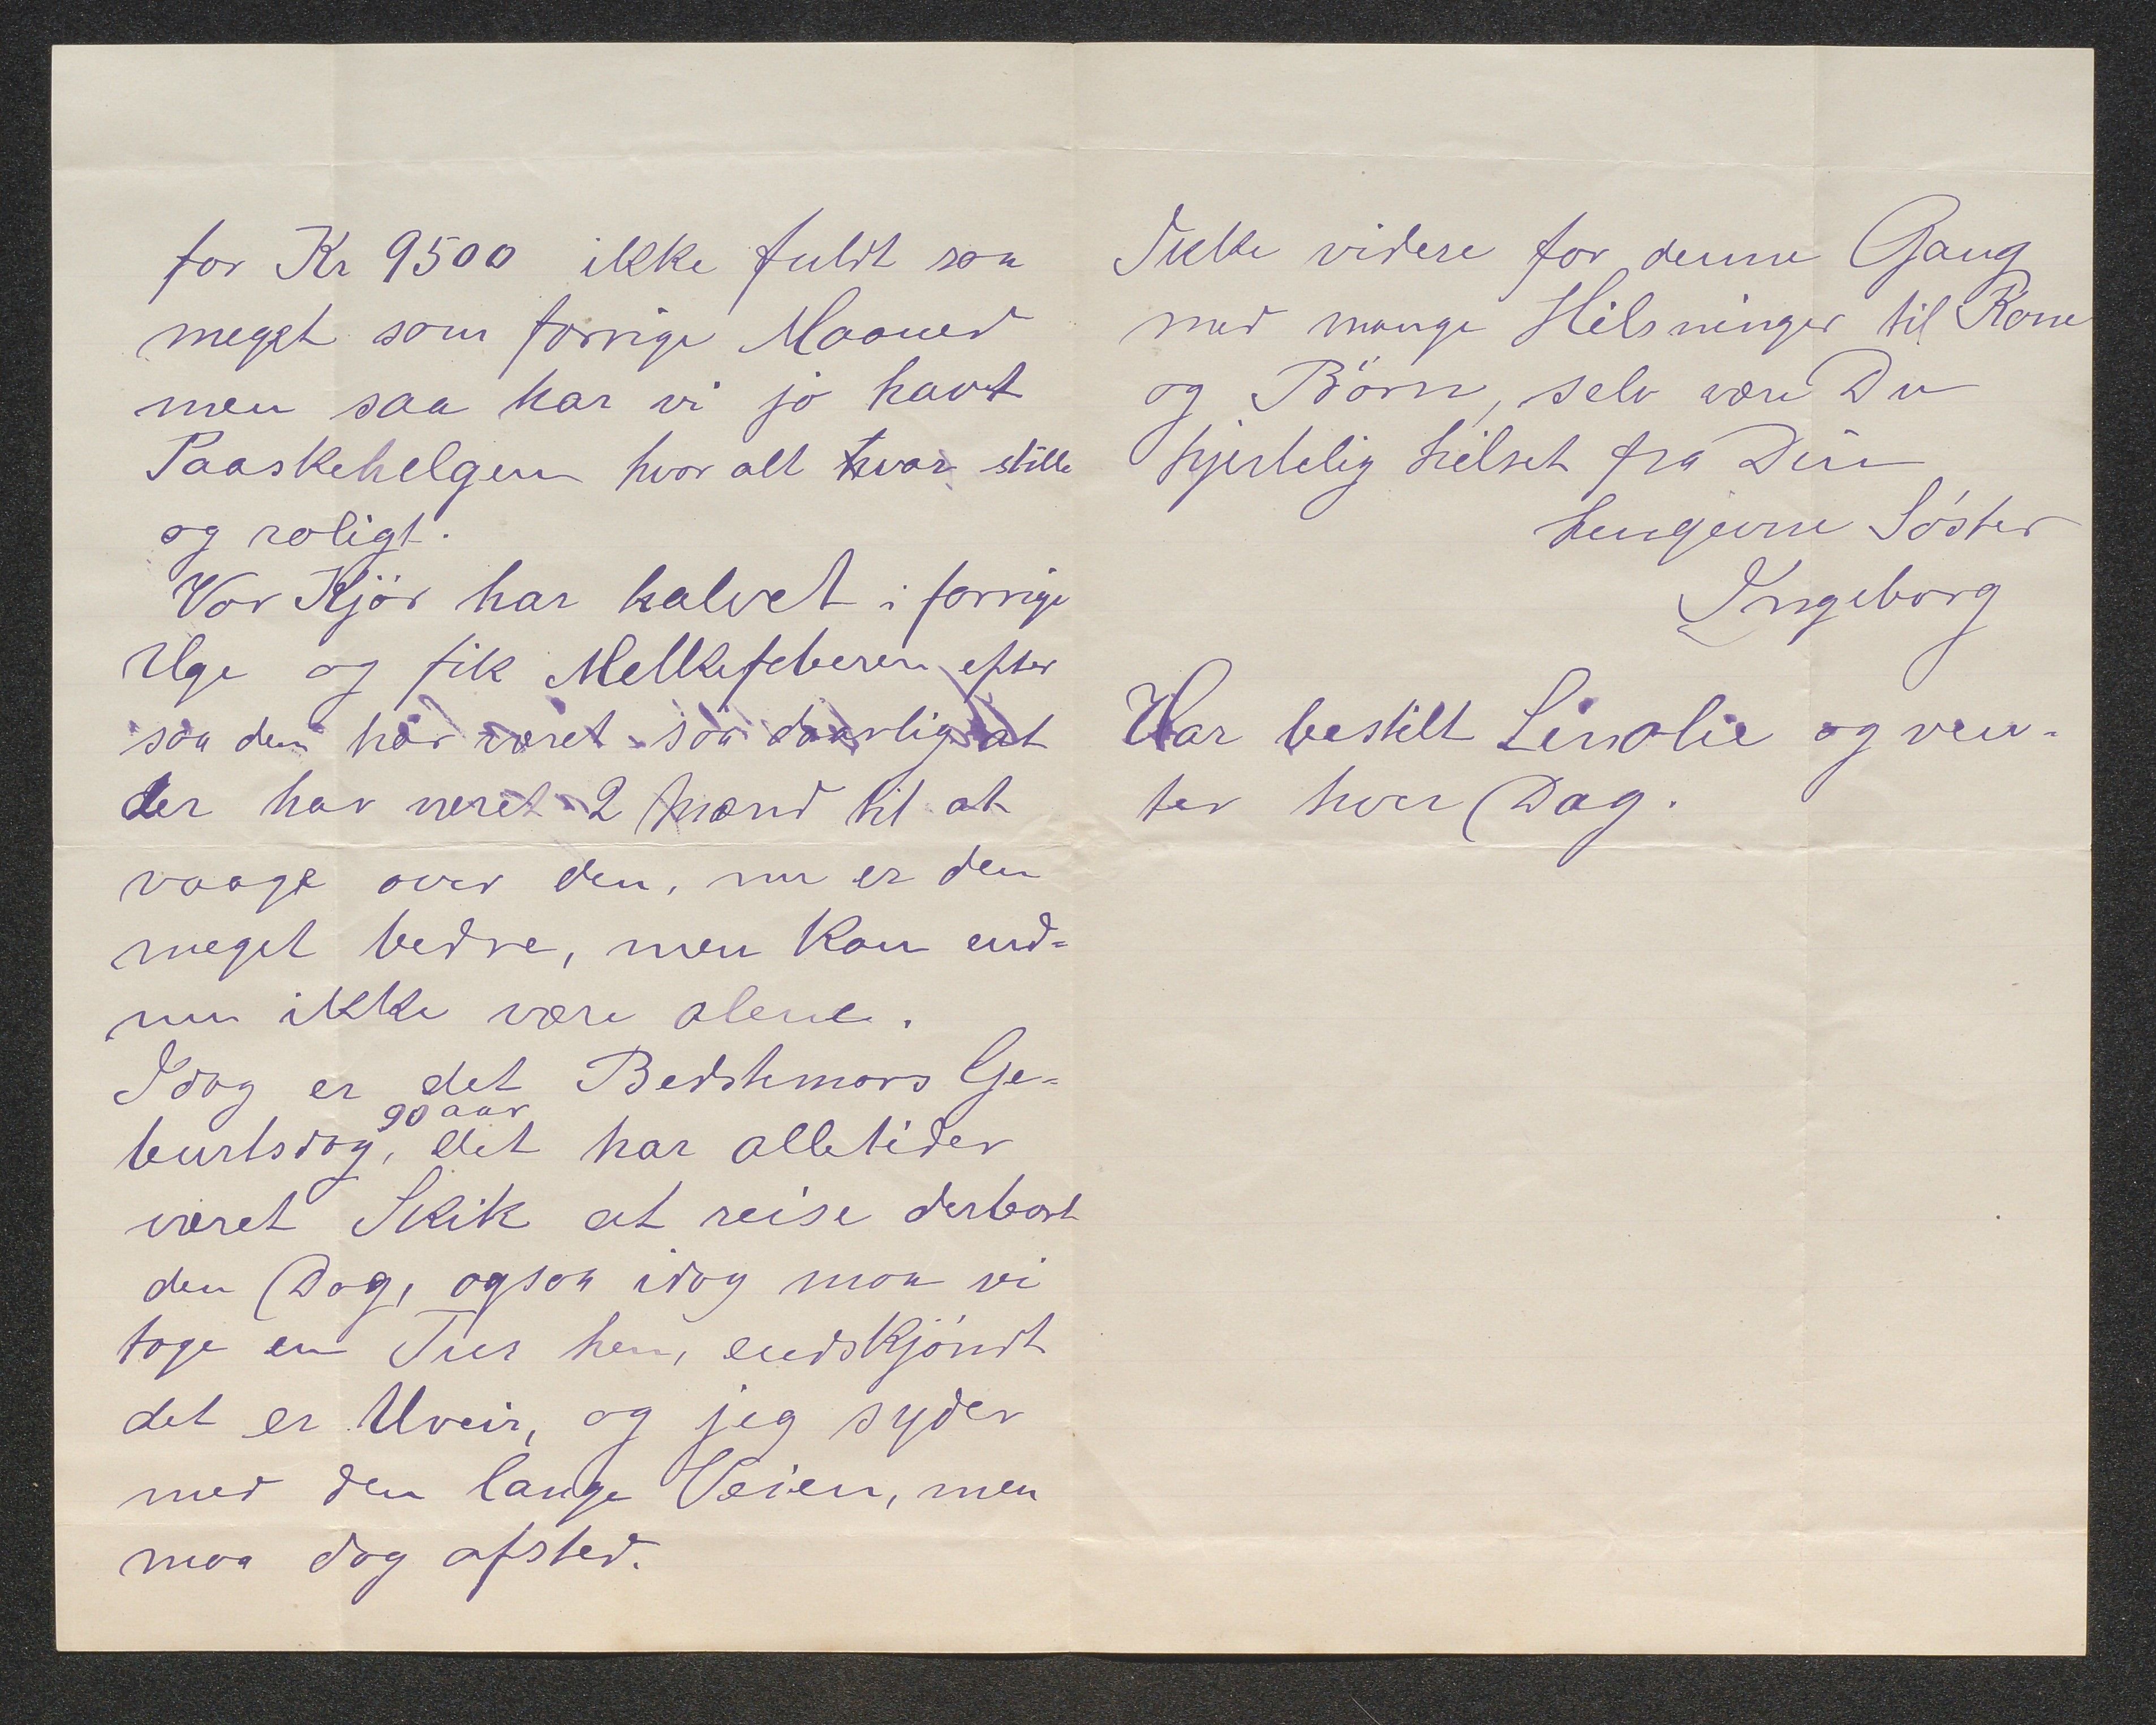 for Kr 9500 ikke fuldt saa
meget som forrige Maaned
men saa har vi jo havt
Paaskehelgen hvor alt var stille
og roligt.
Vor Kjör har kalvet i forrige
Uge og fik Melkefeberen efter
saa den har været saa daarlig at
der har været 2 Mænd til at
vaage over den, nu er den
meget bedre, men kan end-
nu ikke være alene.
Idag er det Bedstemors Ge-
90 aar
burtsdag, det har alletider
været Skik at reise derbort
den Dag, ogsaa idag maa vi
tage en Tur hen, endskjöndt
det er Uveir, og jeg syder
med den lange Veien, men
maa dog afsted.
Ikke videre for denne Gang
med mange Hilsninger til Kone
og Börn, selv være Du
hjertelig hilset fra Din
hengivne Söster
Ingeborg
Har bestilt Linolie og ven-
ter hver Dag.